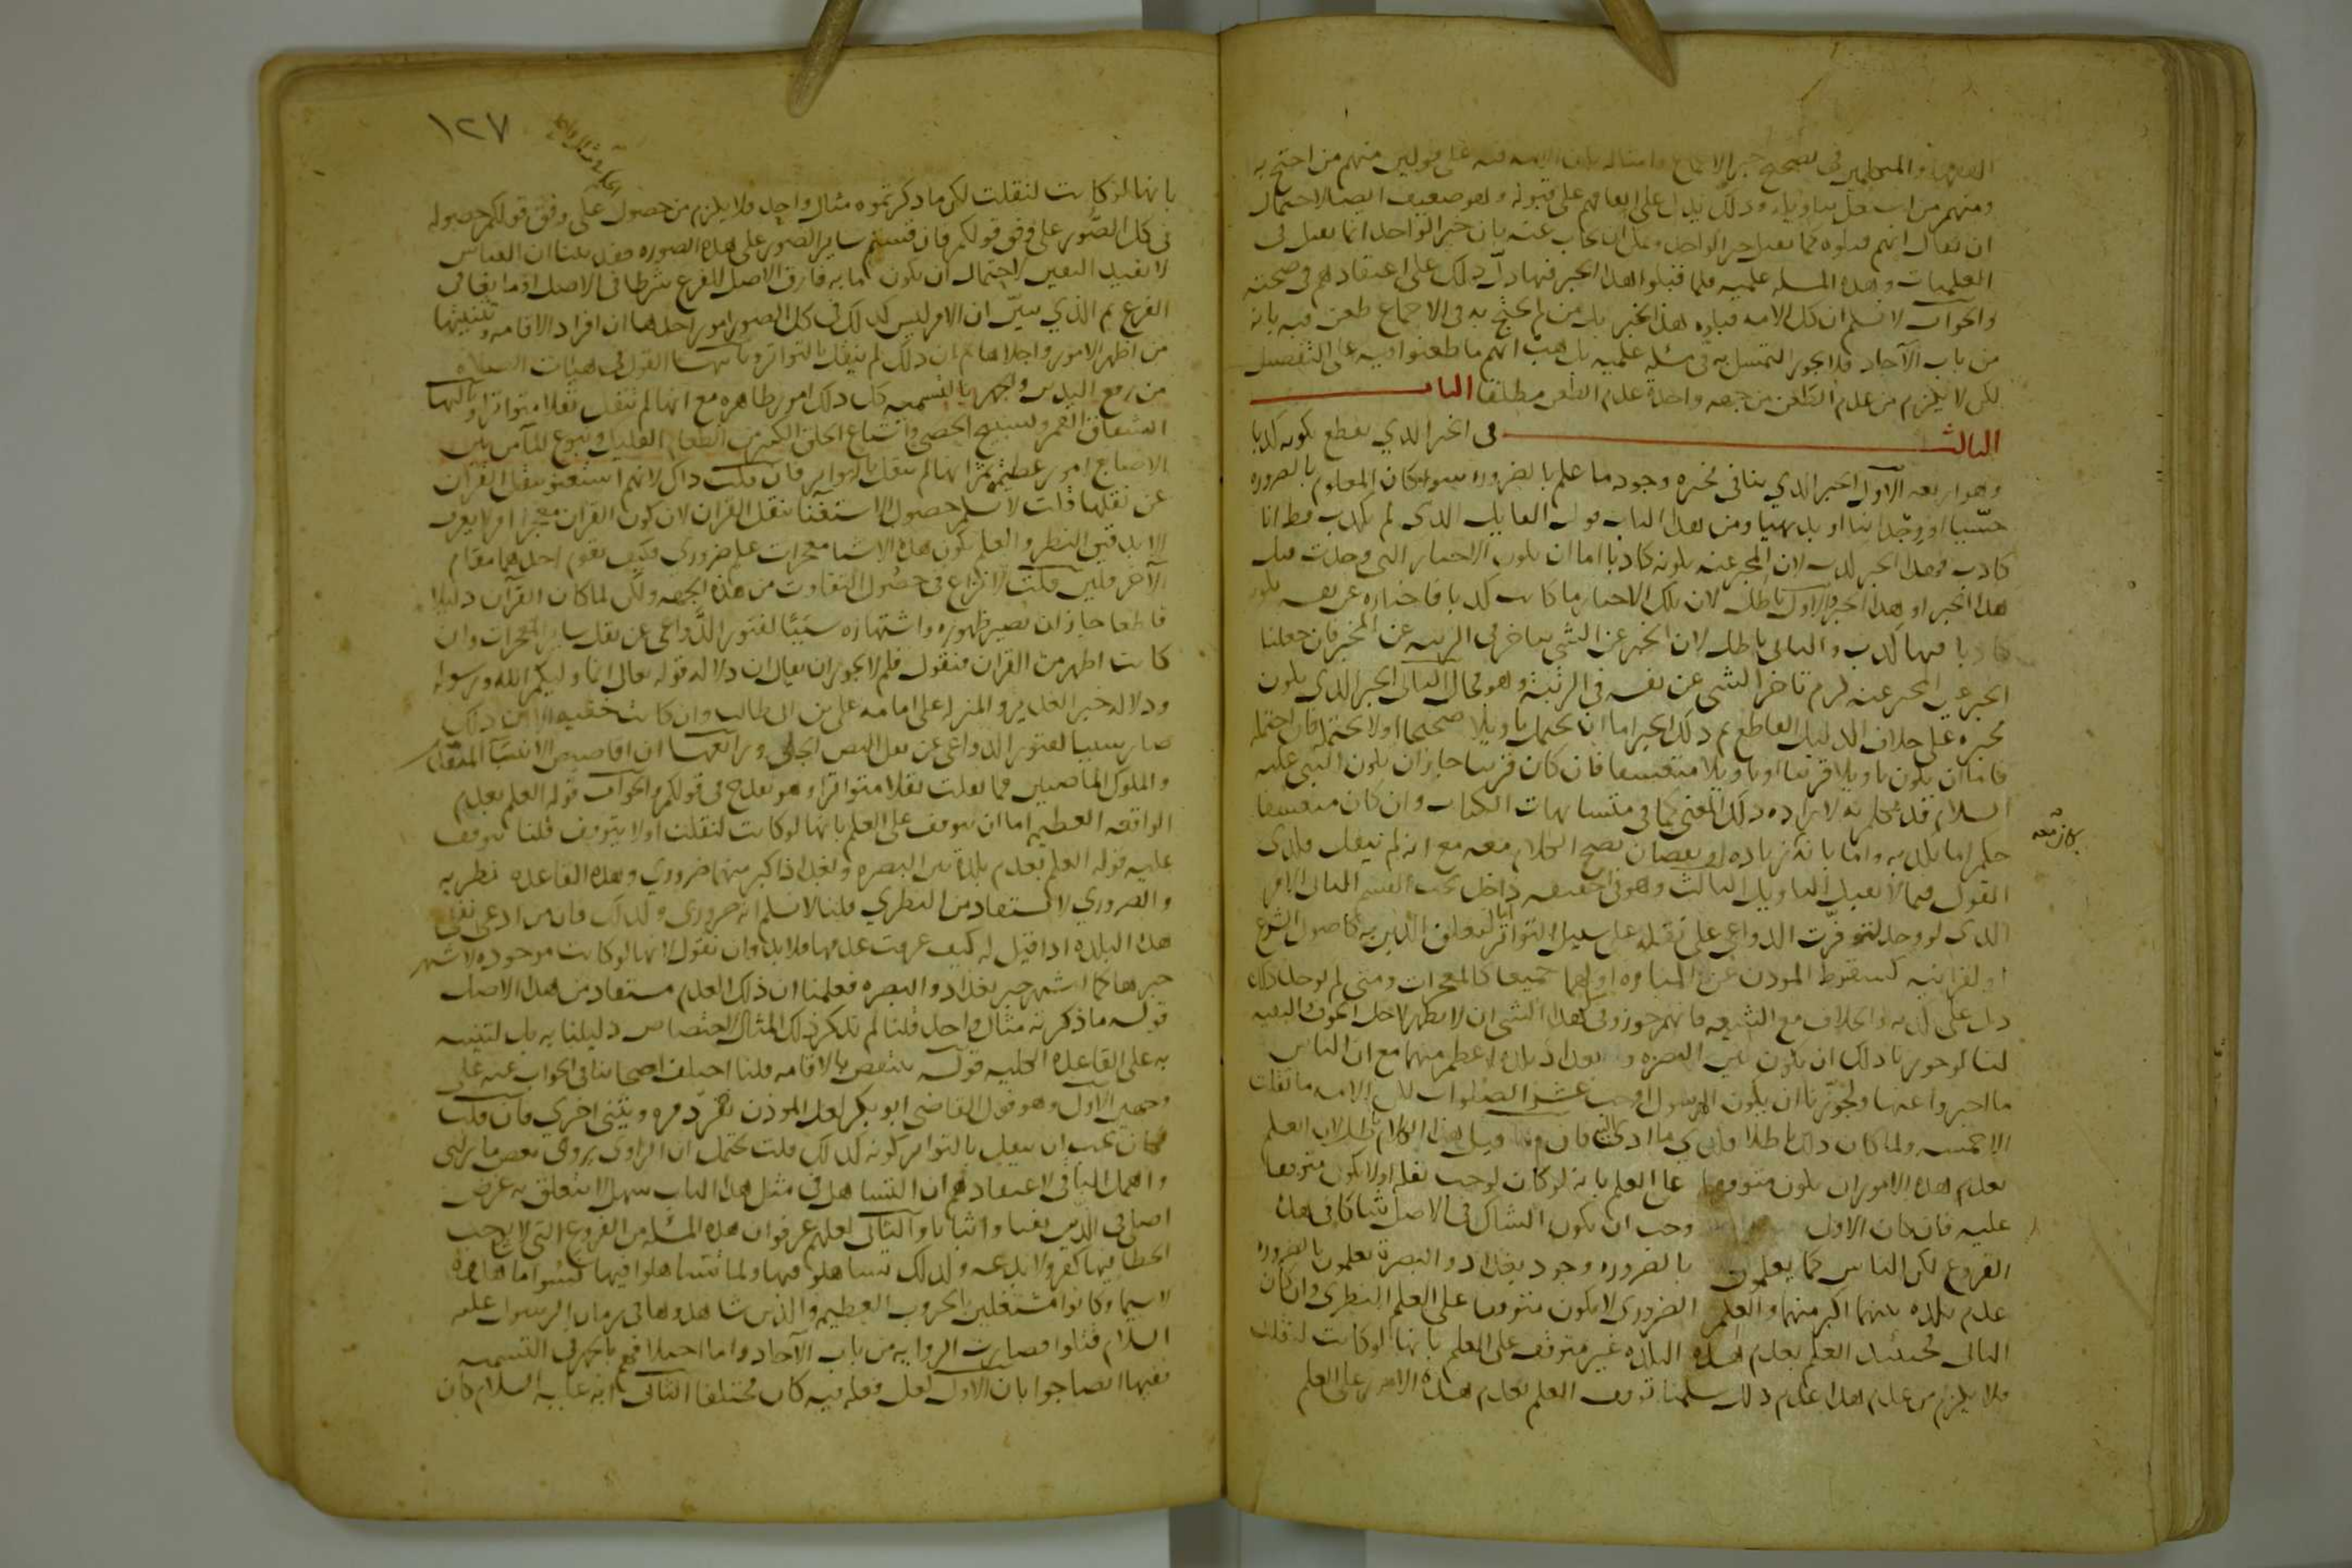 الفقهاء والمتكلمين في تصحيح خبر الاجماع وامثاله بان الامه فيه على قولين منهم من احتج به
ومنهم من اشتغل بتاويله وذلك يدل على اتفاقهم على قبوله وهو ضعيف ايضا لاحتمال
ان يقال انهم قبلوه كما يقبل خبر الواحد ويمكن ان يجاب عنه بان خبر الواحد انما يقبل في
العمليات وهذه المسله علميه فلما قبلوا هذا الخبر فيها دل ذلك على اعتقادهم في صحته
والجواب لا نسلم ان كل الامه قبلوه هذا الخبر بل من لم يحتج به في الاجماع طعن فيه بانه
من باب الآحاد فلا يجوز التمسك به في مسئله علميه بل هب انهم ما طعنوا فيه على التفصيل
لكن لا يلزم من عدم الطعن من جهه واحدة عدم الطعن مطلقا الباب
الثالث في الخبر الذي يقطع بكونه كذبا
وهو اربعه الاول الخبر الذي ينافي مخبره وجود ما علم بالضروره سواء كان المعلوم بالضروره
حسيا او وجدانيا او بديهيا ومن هذا الباب قول القايل الذي لم يكذب قط انا
كاذب فهذا الخبر كذب لان المخبر عنه بكونه كاذبا اما ان يكون الاخبار التي وجدت قبل
هذا الخبر او هذا الخبر والاول باطل لان تلك الاخبار ما كانت كذبا فاخباره عن نفسه بكونه
كاذبا فيها كذب والثاني باطل لان الخبر عن الشي يتاخر في الرتبه عن المخبر فان جعلنا
الخبر عين المخبر عنه لزم تاخر الشي عن نفسه في الرتبة وهو محال الثاني الخبر الذي يكون
مخبره على خلاف الدليل القاطع ثم ذلك الخبر اما ان يحتمل تاويلا صحيحا او لا يحتمله فان احتمله
فاما ان يكون تاويلا قريبا او تاويلا متعسفا فان كان قريبا جاز ان يكون النبي عليه
السلام قد تكلم به لارادة ذلك المعنى كما في متشابهات الكتاب وان كان متعسفا
حكم اما بكذبه واما بانه زياده او نقصان يصح الكلام معه مع انه لم ينقل وكذى
القول فيما لا يقبل التاويل الثالث وهو في الحقيقه داخل تحت القسم الثاني الامر
الذي لو وجد لتوفرت الدواعي على نقله على سبيل التواتر اما لتعلق الدين به كاصول الشرع
او لغرابته كسقوط الموذن عن المناره او لهما جميعا كالمعجزات ومتى لم يوجد ذلك
دل على كذبه والخلاف مع الشيعه فانهم جوزوا في هذا الشي ان لا يظهر لاجل الخوف والتقيه
لنا لو جوزنا ذلك ان يكون بين البصره وبغداد بلدة اعظم منهما مع ان الناس
ما اخبروا عنها ولجوزنا ان يكون الرسول اوجب عشر الصلوات لكن الامه ما نقلت
الا خمسه ولما كان ذلك باطلا فكذى ما ادى اليه فان قيل هذا الكلام باطل لان العلم
بعدم هذه الامور ان يكون متوقفا على العلم بانه لو كان لوجب نقله او لا يكون متوقفا
عليه فان كان الاول وجب ان يكون الشاك في الاصل شاكا في هذه
الفروع لكن الناس كما يعلمون بالضروره وجود بغداد والبصرة يعلمون بالضروره
عدم بلده بينهما اكبر منهما والعلم الضروري لا يكون متوقفا على العلم النظري وان كان
الثاني فحينئذ العلم بعدم هذه البلده غير متوقف على العلم بانها لو كانت لنقلت
فلا يلزم من عدم هذا عدم ذلك سلمنا توقف العلم بعدم هذه الامور على العلم
١٢٧
بانها لو كانت لنقلت لكن ما ذكرتموه مثال واحد فلا يلزم من حصول على وفق قولكم حصوله
في كل الصور على وفق قولكم فان قستم ساير الصور على هذه الصوره فقد بينا ان القياس
لا يفيد اليقين لاحتمال ان يكون ما به فارق الاصل للفرع شرطا في الاصل او مانعا في
الفرع ثم الذي يبين ان الامر ليس كذلك في كل الصور امور احدها ان افراد الاقامه وتثنيتها
من اظهر الامور واجلاها ثم ان ذلك لم ينقل بالتواتر وثانيها القول في هيئات الصلاه
من رفع اليدين والجهر بالتسميه كل ذلك امور ظاهره مع انها لم تنقل نقلا متواترا وثالثها
انشقاق القمر وتسبيح الحصى واشباع الخلق الكثير من الطعام القليل ونبوع الماء من بين
الاصابع امور عظيمه ثم انها لم تنقل بالتواتر فان قلت ذاك لانهم استغنوا بنقل القران
عن نقلها قلت لا نسلم حصول الاستغنا بنقل القران لان كون القران معجزا امر لا يعرف
الا بدقيق النظر والعلم بكون هذه الاشيا معجزات علم ضروري فكيف يقوم احدهما مقام
الآخر فلين قلت لا نزاع في حصول التفاوت من هذه الجهه ولكن لما كان القرآن دليلا
قاطعا جاز ان يصير ظهوره واشتهاره سببا لفتور الدواعي عن نقل ساير المعجزات وان
كانت اظهر من القران فنقول فلم لا يجوز ان يقال ان دلاله قوله تعالى انما وليكم الله ورسوله
ودلاله خبر الغدير والمنزله على امامه على بن ابي طالب وان كانت خفيه الا ان ذلك
صار سببا لفتور الدواعي عن نقل النص الجلي ورابعها ان اقاصيص الانبيا المتقدمين
والملوك الماضيين فما نقلت نقلا متواترا وهو يقدح في قولكم والجواب قوله العلم بعدم
الواقعه العظيمه اما ان يتوقف على العلم بانها لو كانت لنقلت او لا يتوقف قلنا يتوقف
عليه قوله العلم بعدم بلدة بين البصره وبغداد اكبر منهما ضروري وهذه القاعده نظريه
والضروري لا يستفاد من النظري قلنا لا نسلم انه ضروري وكذلك فان من ادعى نفي
هذه البلده اذا قيل له كيف عرفت عدمها فلا بد وان نقول انها لو كانت موجوده لاشتهر
خبرها كما اشتهر خبر بغداد والبصره فعلمنا ان ذلك العلم مستفاد من هذا الاصل
قوله ما ذكرته مثال واحد قلنا لم نذكر ذلك المثال لاختصاص دليلنا به بل لتنبيه
به على القاعده الكليه قوله ينتقض بالاقامه قلنا اختلف اصحابنا في الجواب عنه على
وجهين الاول وهو قول القاضي ابو بكر لعل الموذن يفرد مره ويثنى اخرى فان قلت
فكان يجب ان ينقل بالتواتر كونه كذلك قلت يحتمل ان الراوي يروي بعض ما راى
واهمل الباقي لاعتقادهم ان التساهل في مثل هذا الباب سهل لا يتعلق به غرض
اصلي في الدين نفيا واثباتا والثاني لعلهم عرفوا ان هذه المسئله من الفروع التي لا يوجب
الخطا فيها كفرا ولا بدعه ولذلك تساهلوا فيها ولما تساهلوا فيها نسوا ما شاهدوه
لا سيما وكانوا مشتغلين بالحروب العظيمه والذين شاهدوها في زمان الرسول عليه
السلام قتلوا فصارت الروايه من باب الآحاد واما اختلافهم بالجهر في التسميه
ففيها ايضا جوابان الاول لعل فعله فيه كان مختلفا الثاني انه عليه السلام كان